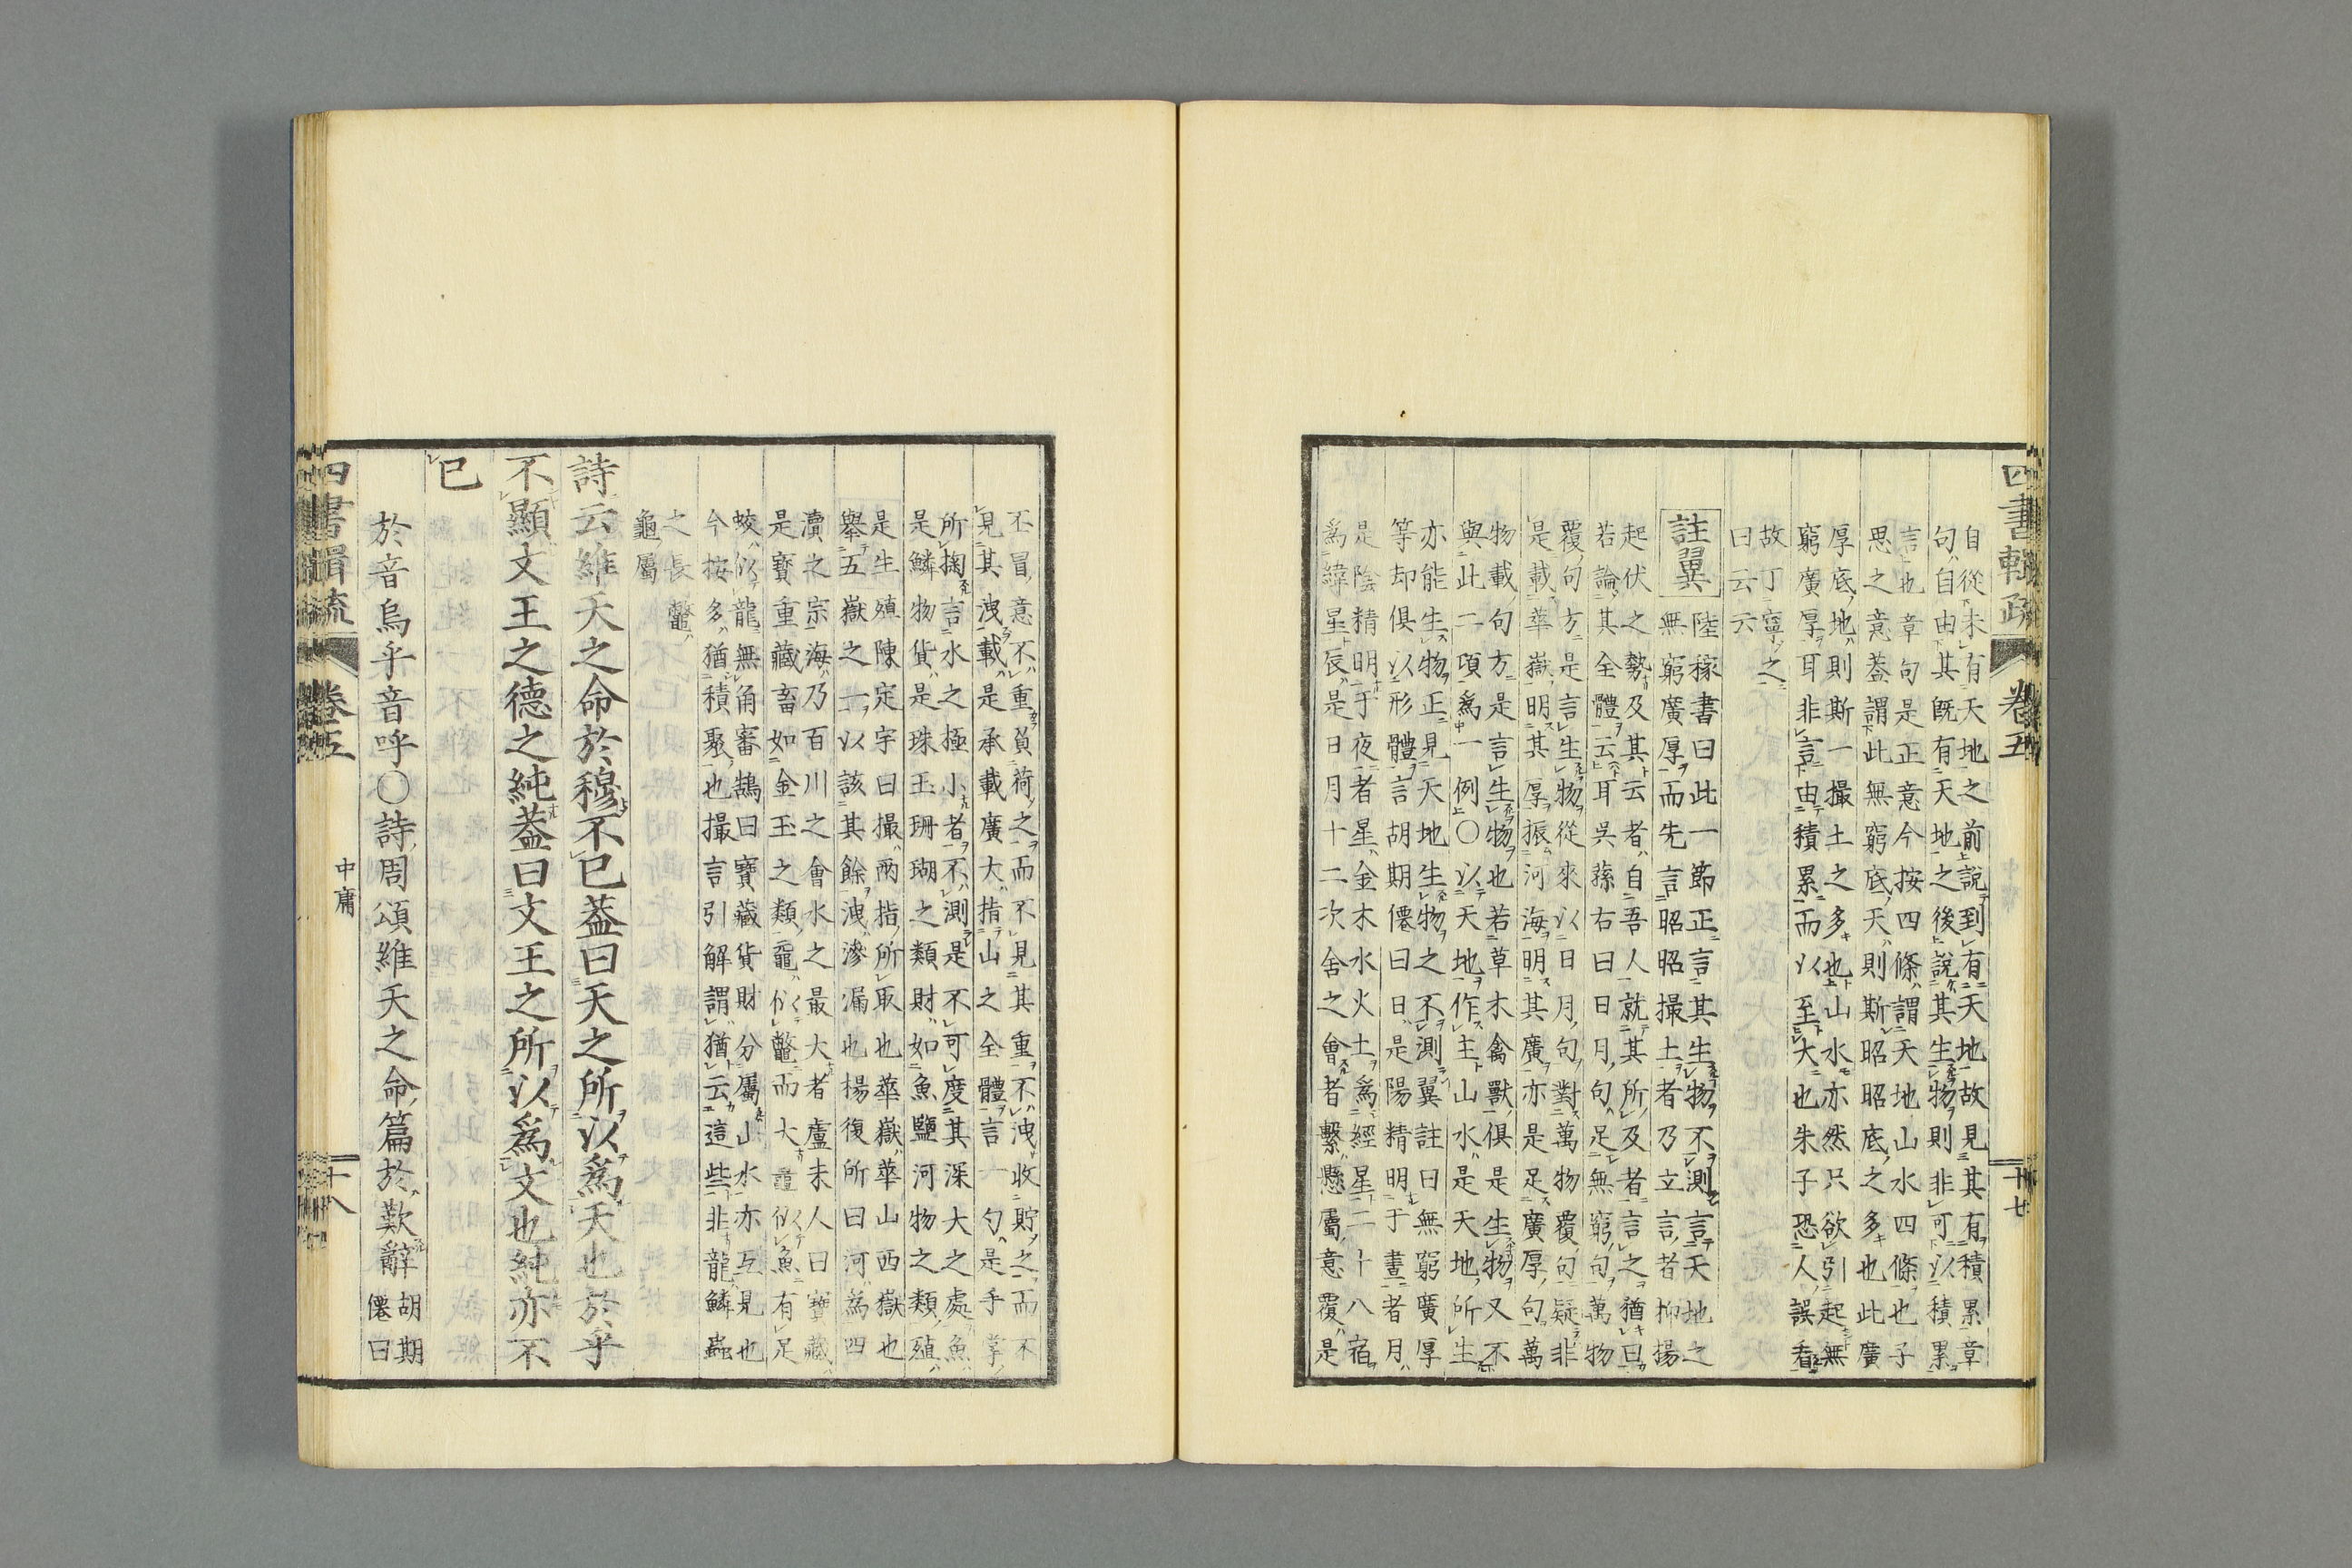 四書輯疏 卷五 十七
自從未有天地之前說到有天地故見其有積累章
句自由其既有天地之後說其生物則非可以積累
言也章句是正意今按四條謂天地山水四條也子
思之意蓋謂此無窮底天則斯昭昭底之多也此廣
厚底地則斯一撮土之多也山水亦然只欲引起無
窮廣厚耳非言由積累而以至大也朱子恐人誤看
故丁寧之
曰云云
註翼
陸稼書曰此一節正言其生物不測言天地之
無窮廣厚而先言昭昭撮土者乃立言者抑揚
起伏之勢及其云者自吾人就其所及者言之猶曰
若論其全體云耳吳蓀右曰日月句足無窮句萬物
覆句方是言生物從來以日月句對萬物覆句疑非
是載華嶽明其厚振河海明其廣亦是足廣厚句萬
物載句方是言生物也若草木禽獸俱是生物又不
與此二項為一例〇以天地作主山水是天地所生
亦能生物正見天地生物之不測翼註曰無窮廣厚
等却俱以形體言胡期僊曰日是陽精明于晝者月
是陰精明于夜者星金木水火土為經星二十八宿
為緯星辰是日月十二次舍之會者繫懸屬意覆是
不冒意不重負荷之而不見其重不洩收貯之而不
見其洩載是承載廣大指山之全體言一勺是手掌
所掬言水之極小者不測是不可度其深大之處魚
是鱗物貨是珠玉珊瑚之類財如魚鹽河物之類殖
是生殖陳定宇曰撮兩指所取也華嶽華山西嶽也
舉五嶽之一以該其餘洩滲漏也楊復所曰河為四
瀆之宗海乃百川之會水之最大者盧未人曰寶藏
是寶重藏畜如金玉之類黿似鼈而大鼉似魚有足
蛟似龍無角審鵠曰寶藏貨財分屬山水亦互見也
今按多猶積聚也撮言引解謂猶云這些非龍鱗蟲
之長鼈
龜屬
詩云維天之命於穆不已蓋曰天之所以為天也於乎
不顯文王之德之純蓋曰文王之所以為文也純亦不
已
於音烏乎音呼〇詩周頌維天之命篇於歎辭胡期
僊曰
四書輯疏 卷五 中庸 十八